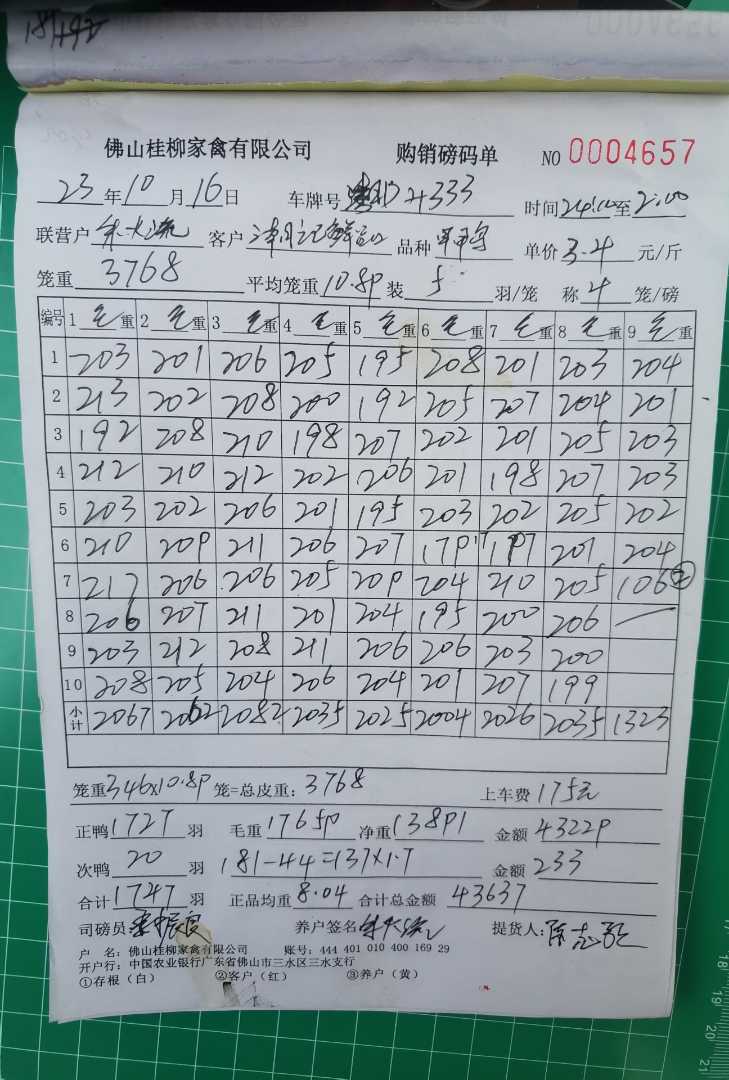 佛山桂柳家禽有限公司 购销磅码单 NO 0004657
23 年 10 月 16 日 车牌号 4333 时间 24:00 至 2:00
联营户 客户 品种 单价 3.4 元/斤
笼重 3768 平均笼重 10.89 装 5 羽/笼 称 4 笼/磅
编号 1 毛重 2 毛重 3 毛重 4 毛重 5 毛重 6 毛重 7 毛重 8 毛重 9 毛重
1 203 201 206 205 195 208 201 203 204
2 213 202 208 200 192 205 207 204 201
3 192 208 210 198 207 202 201 205 203
4 212 210 212 202 206 201 198 207 203
5 203 202 206 201 195 203 202 205 202
6 210 209 211 206 207 179 197 201 204
7 217 206 206 205 209 204 210 205 106 ②
8 206 207 211 201 204 195 200 206 —
9 203 212 208 211 206 206 203 200
10 208 205 204 206 204 201 207 199
小计 2067 2062 2082 2035 2025 2004 2026 2035 1323
笼重 346×10.89 笼=总皮重: 3768 上车费 175元
正鸭 1727 羽 毛重 17659 净重 13891 金额 43229
次鸭 20 羽 181-44=137×1.7 金额 233
合计 1747 羽 正品均重 8.04 合计总金额 43637
司磅员 养户签名 提货人:
户 名: 佛山桂柳家禽有限公司 账号: 444 401 010 400 169 29
开户行: 中国农业银行广东省佛山市三水区三水支行
①存根（白） ②客户（红） ③养户（黄）
17
18
19
20
21